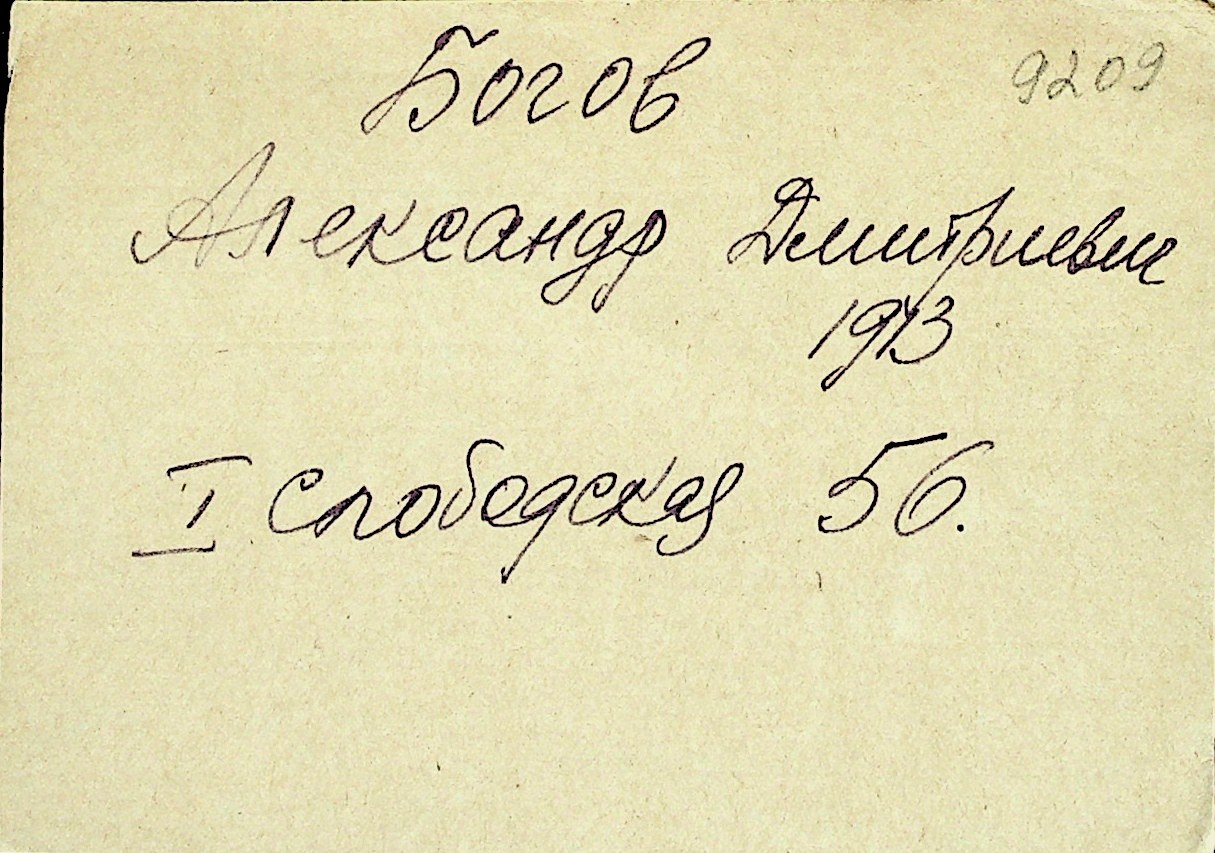 Богов 9209
Александр Дмитриевич
1913
I Слободская 56.